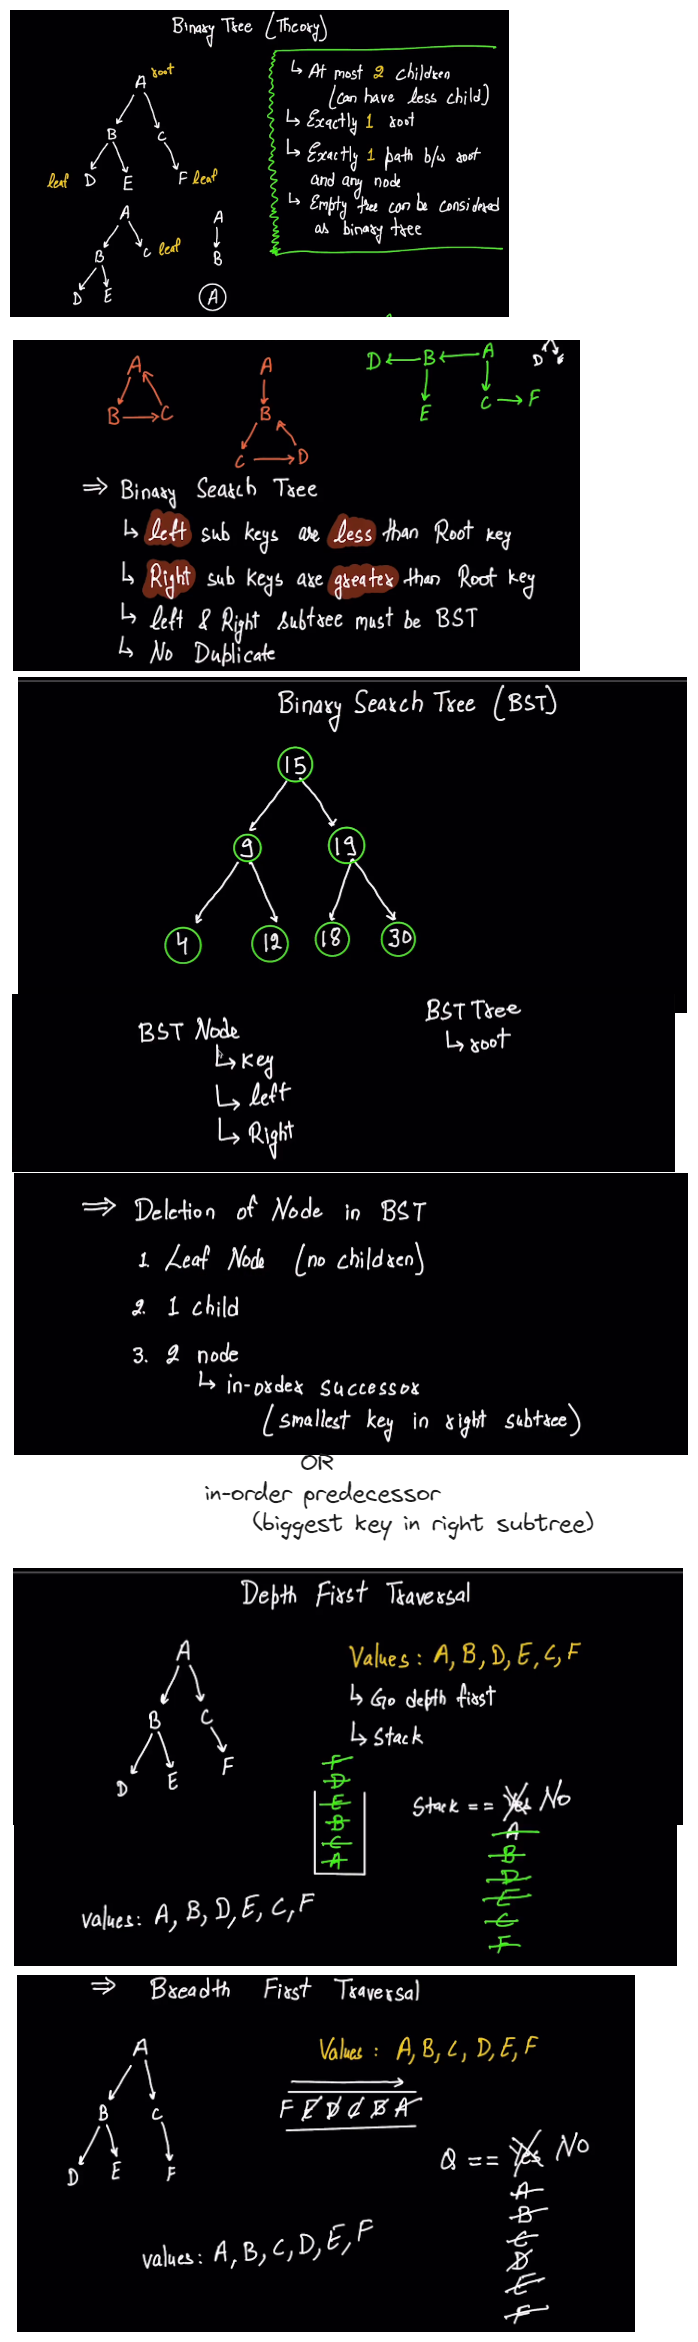 Binary Tree (Theory)
A root
B C
leaf D E F leaf
A
B C leaf
D E
A
B
A
↳ At most 2 children
(can have less child)
↳ Exactly 1 root
↳ Exactly 1 path b/w root
and any node
↳ Empty tree can be considered
as binary tree
A
B → C
A
B
C → D
D ← B ← A
E C → F
D E
⇒ Binary Search Tree
↳ left sub keys are less than Root key
↳ Right sub keys are greater than Root key
↳ left & Right subtree must be BST
↳ No Duplicate
Binary Search Tree (BST)
15
9 19
4 12 18 30
BST Node
↳ Key
↳ left
↳ Right
BST Tree
↳ root
⇒ Deletion of Node in BST
1. Leaf Node (no children)
2. 1 child
3. 2 node
↳ in-order successor
(smallest key in right subtree)
OR
in-order predecessor
(biggest key in right subtree)
Depth First Traversal
A
B C
D E F
Values: A, B, D, E, C, F
↳ Go depth first
↳ Stack
F
D
E
B
C
A
Stack == Yes No
A
B
D
E
C
F
values: A, B, D, E, C, F
⇒ Breadth First Traversal
A
B C
D E F
Values: A, B, C, D, E, F
F E D C B A
Q == Yes No
A
B
C
D
E
F
values: A, B, C, D, E, F